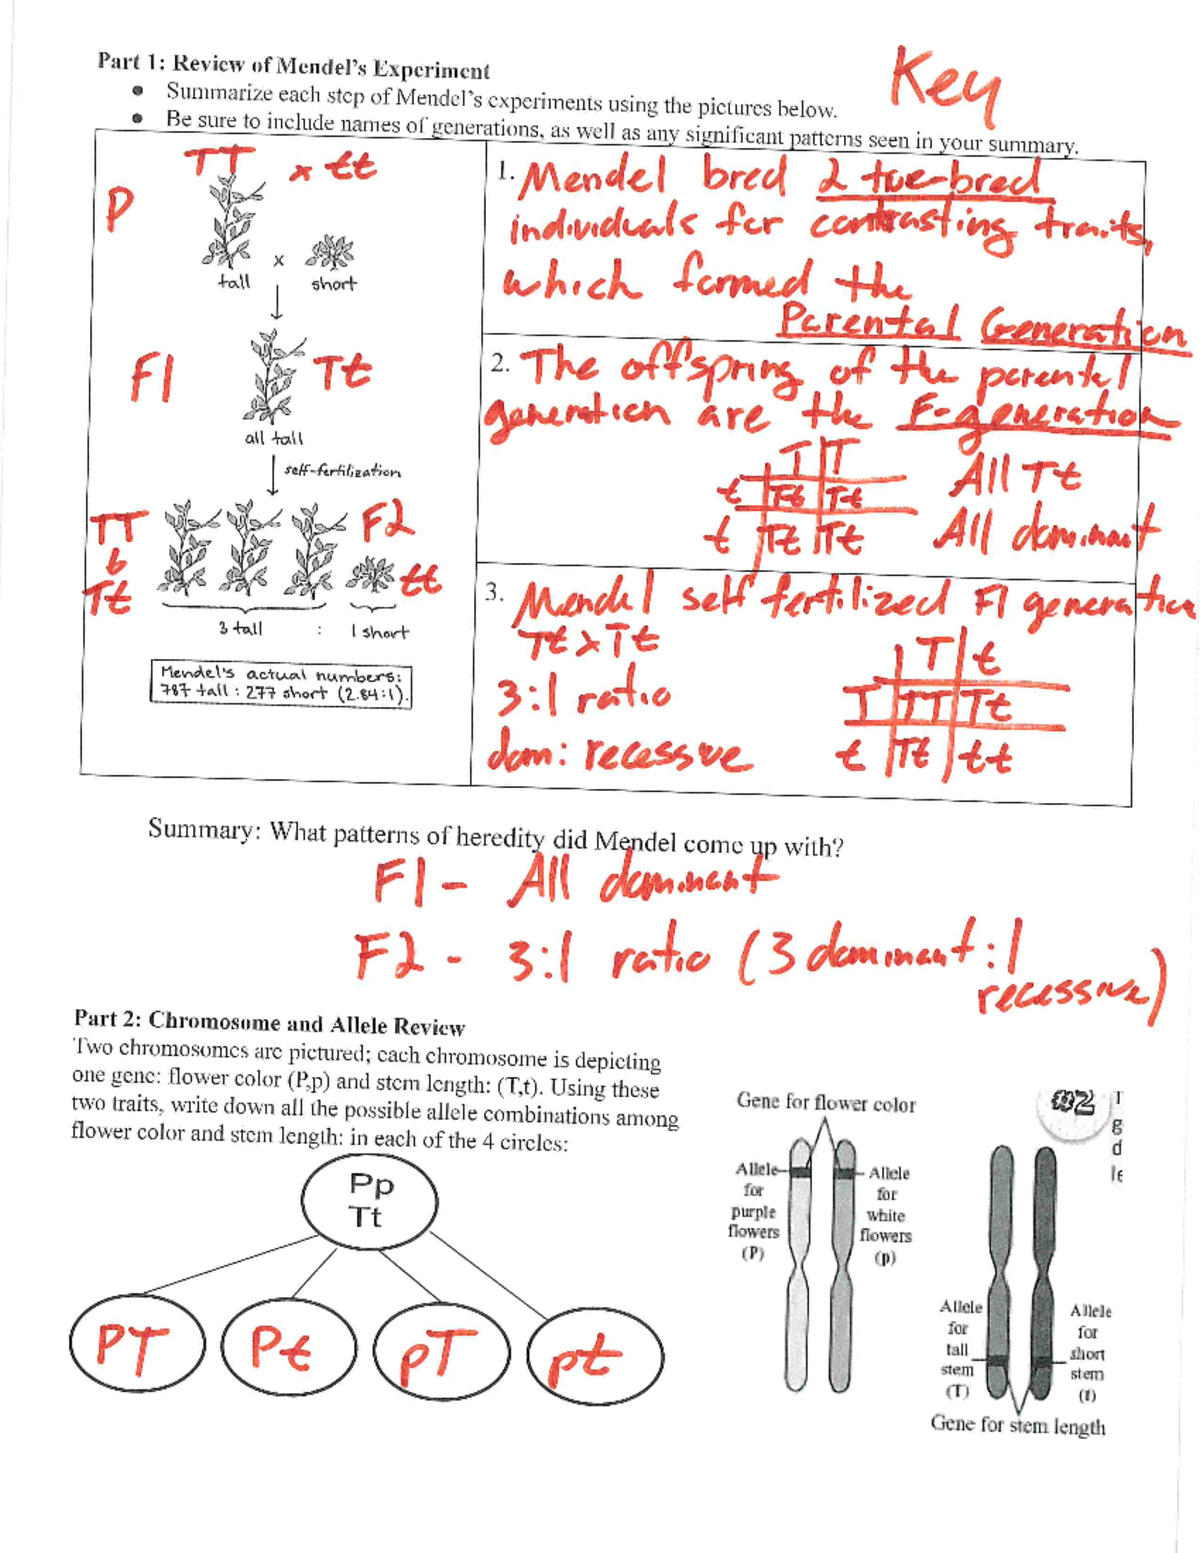 Part 1: Review of Mendel's Experiment
Key
• Summarize each step of Mendel's experiments using the pictures below.
• Be sure to include names of generations, as well as any significant patterns seen in your summary.
TT x tt
P
x
tall short
F1 Tt
all tall
self-fertilization
TT
Tt
F2
tt
3 tall : 1 short
Mendel's actual numbers:
787 tall : 277 short (2.84:1).
1. Mendel bred 2 tue-bred
individuals for contrasting traits,
which formed the
Parental Generation
2. The offspring of the parental
generation are the F-generation
T T
t Tt Tt
t Tt Tt
All Tt
All dominant
3. Mendel self fertilized F1 generation
Tt x Tt
3:1 ratio
dom: recessive
T t
T TT Tt
t Tt tt
Summary: What patterns of heredity did Mendel come up with?
F1 - All dominant
F2 - 3:1 ratio (3 dominant:1
recessive)
Part 2: Chromosome and Allele Review
Two chromosomes are pictured; each chromosome is depicting
one gene: flower color (P,p) and stem length: (T,t). Using these
two traits, write down all the possible allele combinations among
flower color and stem length: in each of the 4 circles:
Pp
Tt
PT Pt pT pt
Gene for flower color
Allele
for
purple
flowers
(P)
Allele
for
white
flowers
(p)
#2
T
g
d
le
Allele
for
tall
stem
(T)
Allele
for
short
stem
(t)
Gene for stem length